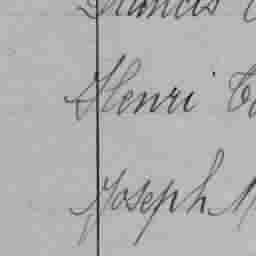 Francis
Henri
Joseph M